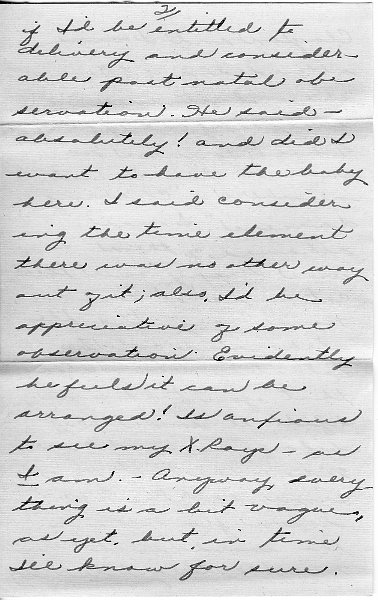 2
if I'd be entitled to
delivery and consider-
able post natal obe
servation. He said -
absolutely! and did I
want to have the baby
here. I said consider
ing the time element
there was no other way
out of it; also, I'd be
appreciative of some
observation. Evidently
he feels it can be
arranged! Is anxious
to see my X Rays - as
I am. - Anyway, every
thing is a bit vague,
as yet, but, in time
I'll know for sure.